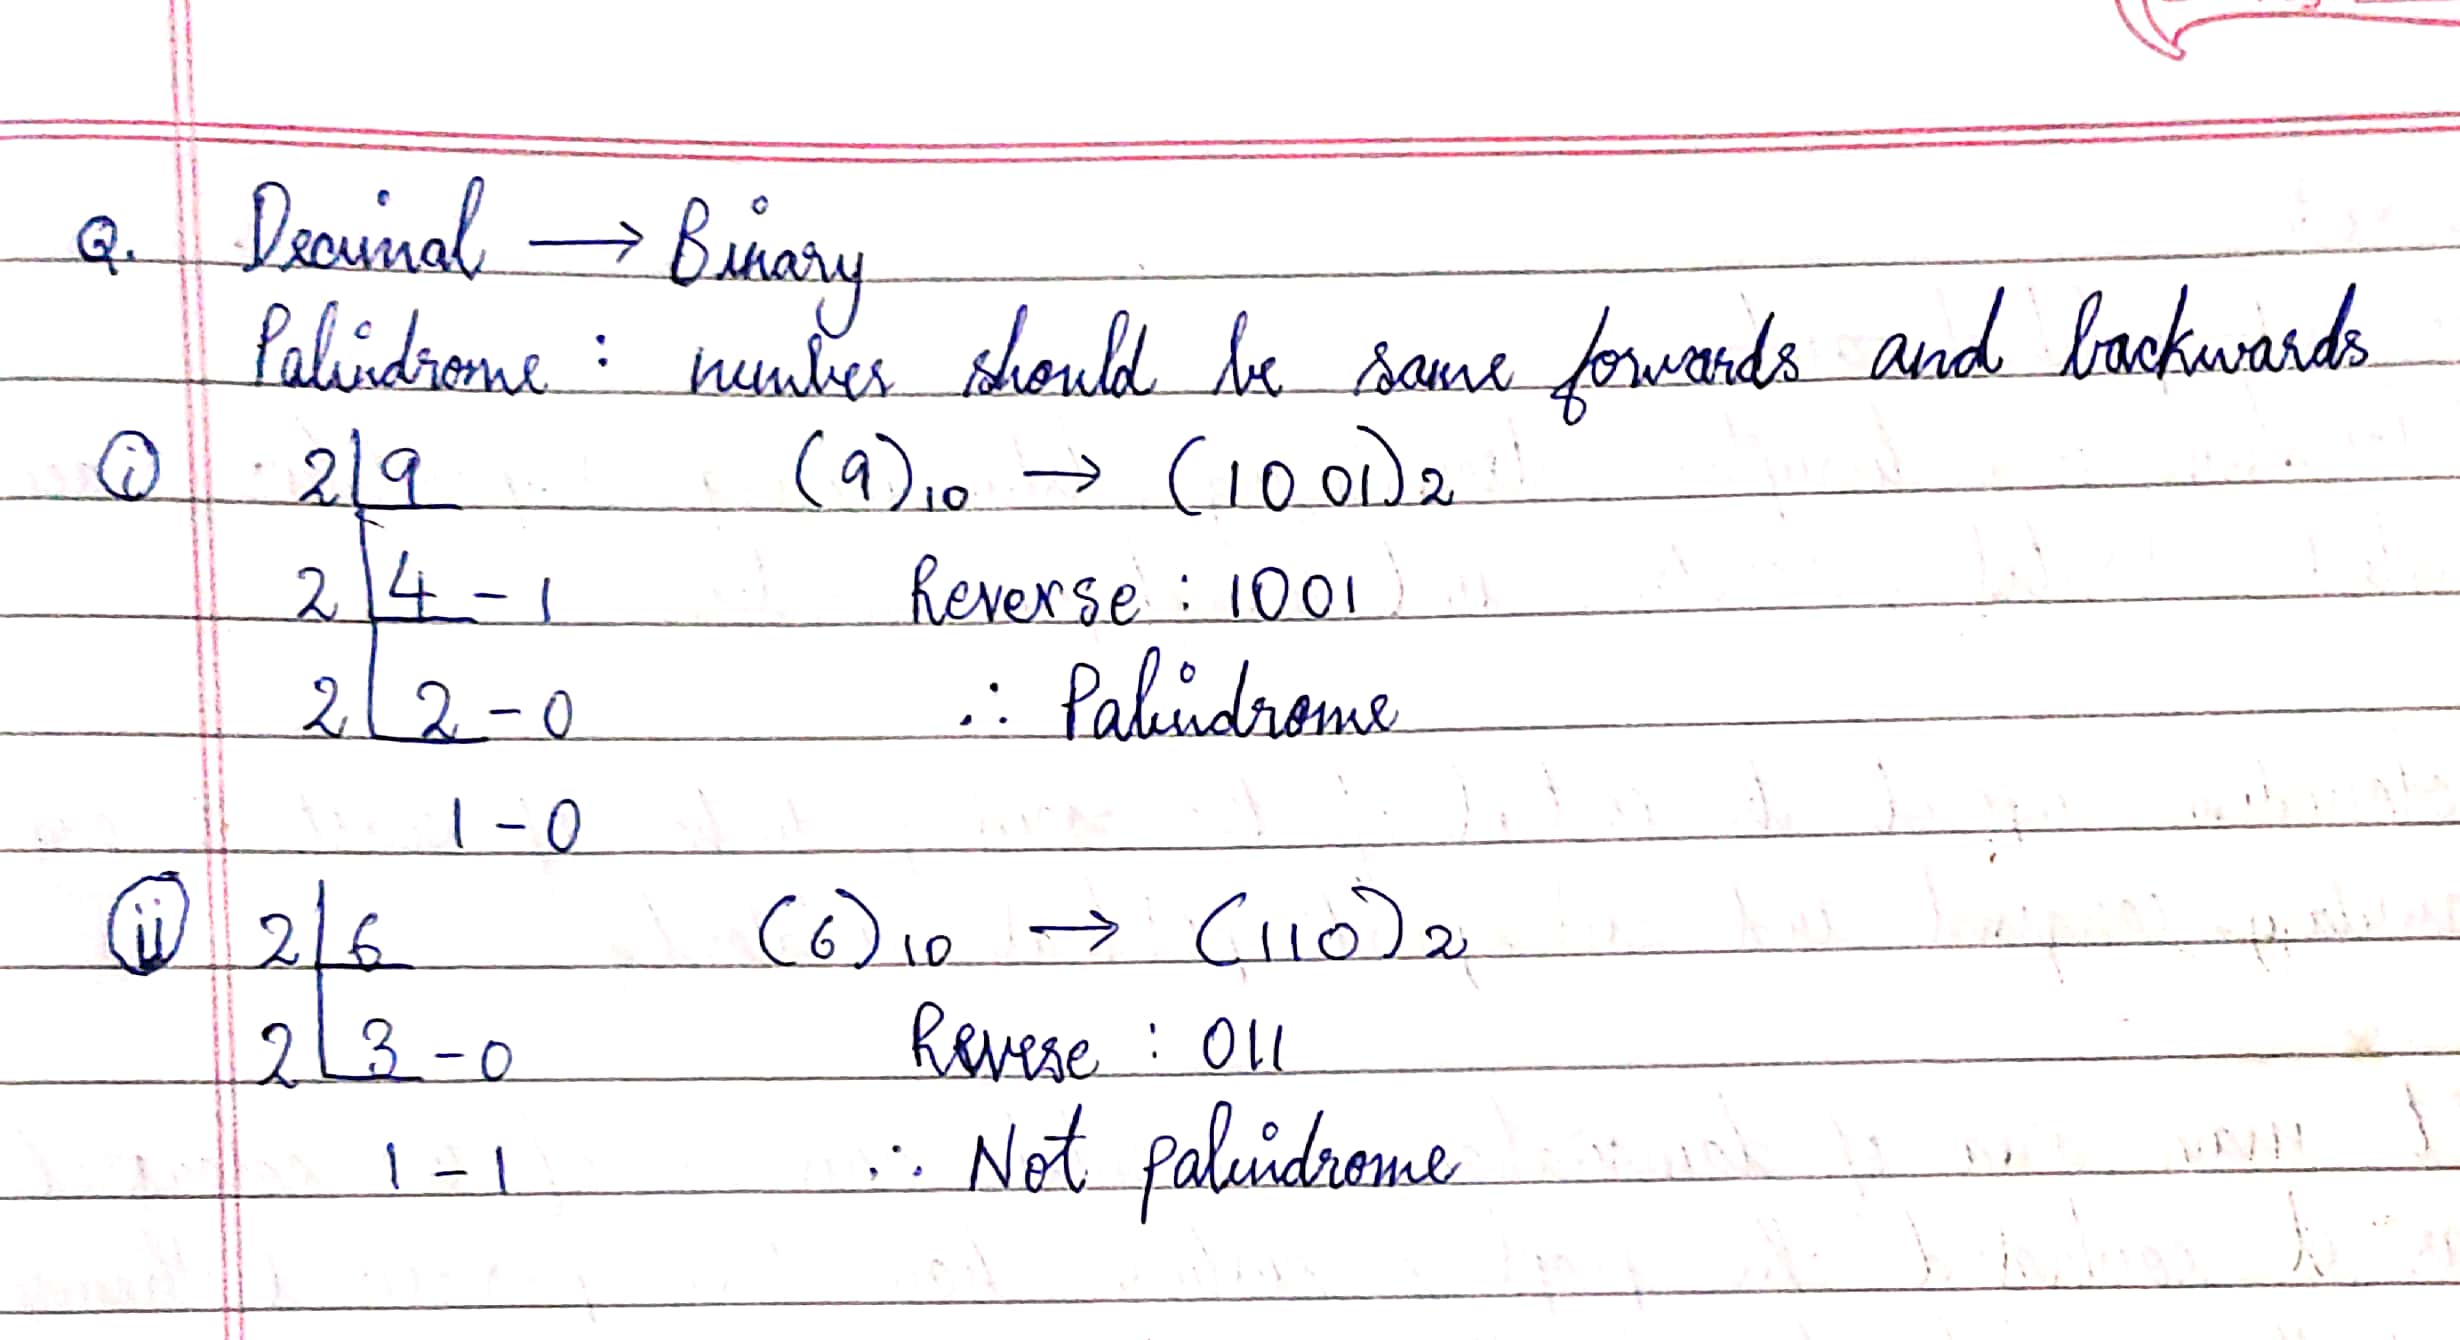 Q. Decimal → Binary
Palindrome : number should be same forwards and backwards
(i) 2 | 9 (9)10 → (1001)2
2 | 4 - 1 Reverse : 1001
2 | 2 - 0 ∴ Palindrome
1 - 0
(ii) 2 | 6 (6)10 → (110)2
2 | 3 - 0 Revese : 011
1 - 1 ∴ Not palindrome